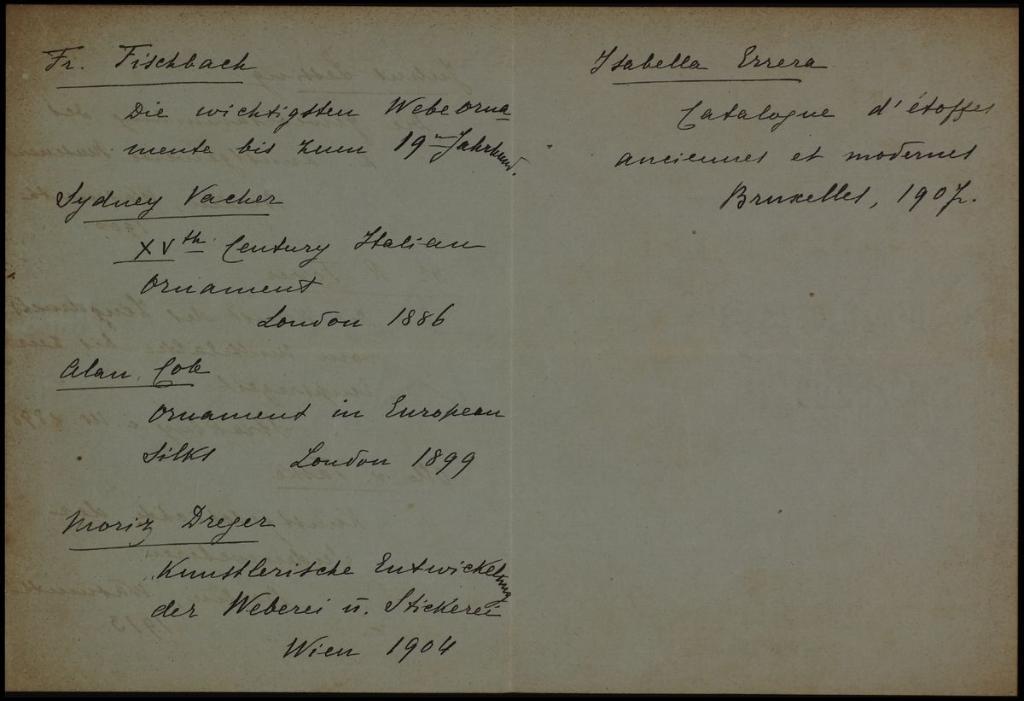 Fr. Fischbach
Die wichtigsten Webeorna
mente bis zum 19n Jahrhund.
Sydney Vacher
XVth Century Italian
Ornament
London 1886
Alan Cole
Ornament in European
Silks London 1899
Moriz Dreger
Kunstlerische Entwickelung
der Weberei u. Stickerei
Wien 1904
Isabella Errera
Catalogue d'étoffes
anciennes et modernes
Bruxelles, 1907.